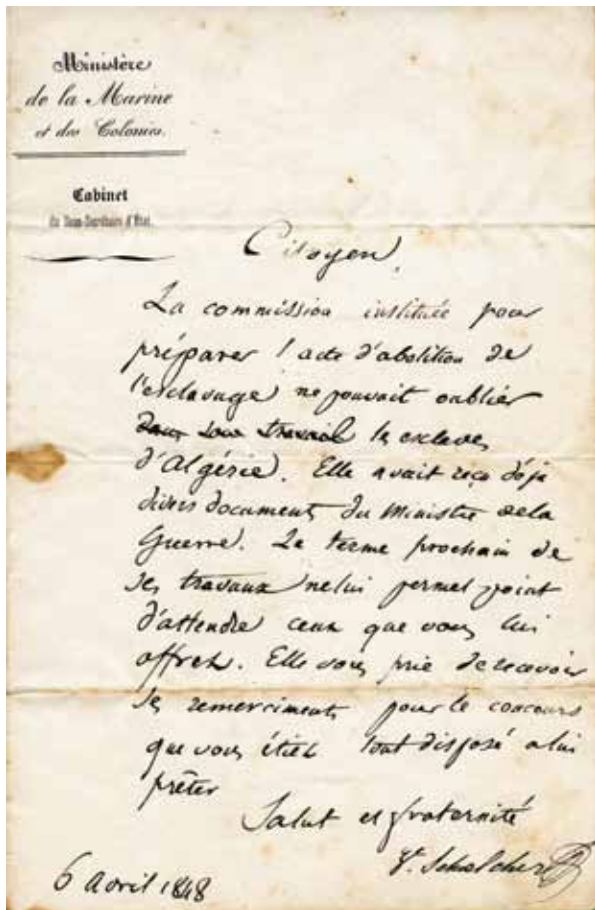 Ministère
de la Marine
et des Colonies.
Cabinet
du Sous-Secrétaire d'Etat.
Citoyen,
La commission instituée pour
préparer l'acte d'abolition de
l'esclavage ne pouvait oublier
dans son travail les esclaves
d'Algérie. Elle avait reçu déja
divers documents du Ministre de la
Guerre. Le terme prochain de
ses travaux ne lui permet point
d'attendre ceux que vous lui
offrez. Elle vous prie de recevoir
ses remerciments pour le concours
que vous étiez tout disposé a lui
prêter
Salut et fraternité
V. Schœlcher
6 avril 1848